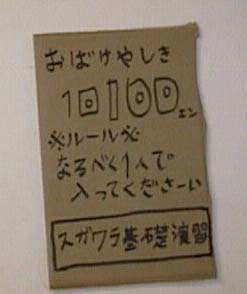 おばけやしき
1回100エン
※ルール※
なるべく1人で
入ってくださーい
スガワラ基礎演習